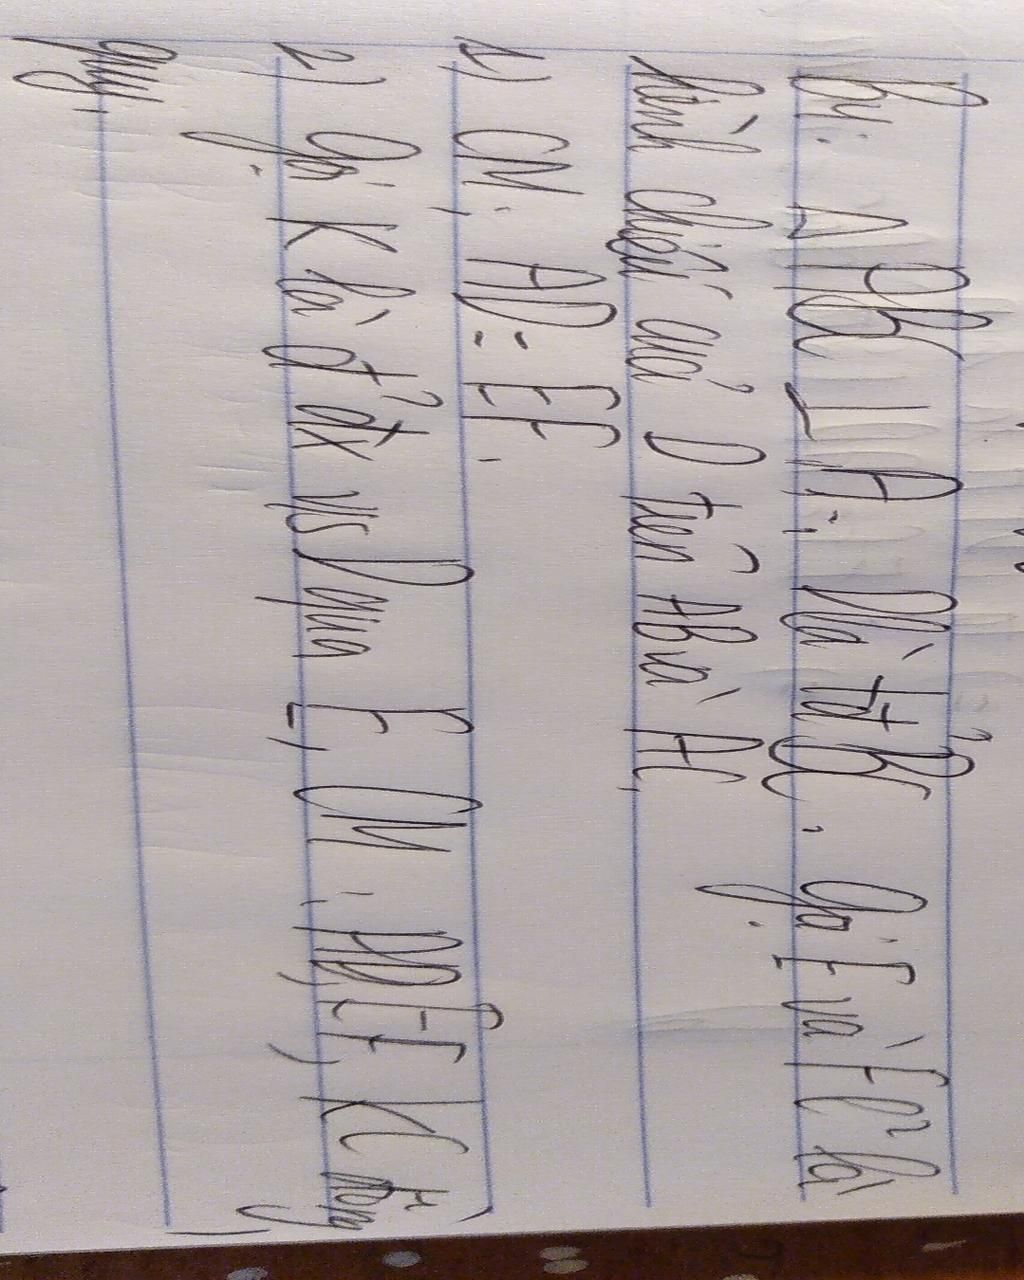 B1: Δ ABC ⊥ A; D là tđ BC. Gọi E và F là
hình chiếu của D trên AB và AC,
1) CM: AD = EF.
2) Gọi K là đ' đx với D qua E, CM: AD, EF, KC đồng
quy,